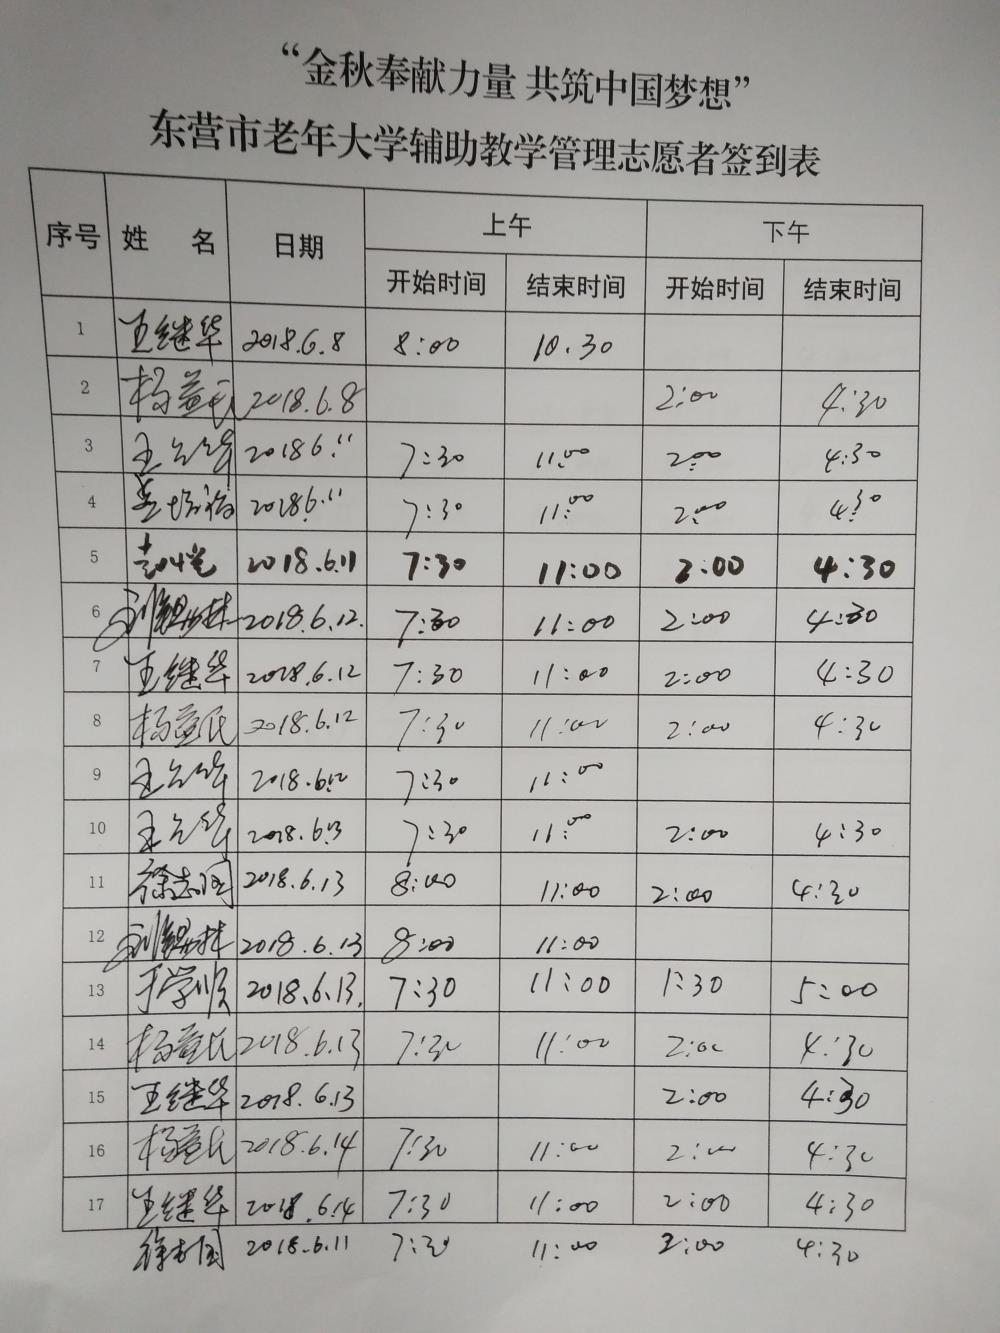 “金秋奉献力量 共筑中国梦想”
东营市老年大学辅助教学管理志愿者签到表
序号 姓 名 日期 上午 下午
开始时间 结束时间 开始时间 结束时间
1 王继华 2018.6.8 8:00 10.30
2 杨益民 2018.6.8 2:00 4:30
3 2018 6.11 7:30 11:00 2:00 4:30
4 2018 6.11 7:30 11:00 2:00 4:30
5 2018.6.11 7:30 11:00 2:00 4:30
6 2018.6.12. 7:30 11:00 2:00 4:30
7 王继华 2018.6.12 7:30 11:00 2:00 4:30
8 杨益民 2018.6.12 7:30 11:00 2:00 4:30
9 2018.6.12 7:30 11:00
10 2018.6.13 7:30 11:00 2:00 4:30
11 徐志国 2018.6.13 8:00 11:00 2:00 4:30
12 2018.6.13 8:00 11:00
13 于学顺 2018.6.13. 7:30 11:00 1:30 5:00
14 杨益民 2018.6.13 7:30 11:00 2:00 4:30
15 王继华 2018.6.13 2:00 4:30
16 杨益民 2018.6.14 7:30 11:00 2:00 4:30
17 王继华 2018.6.14 7:30 11:00 2:00 4:30
徐志国 2018.6.11 7:30 11:00 2:00 4:30